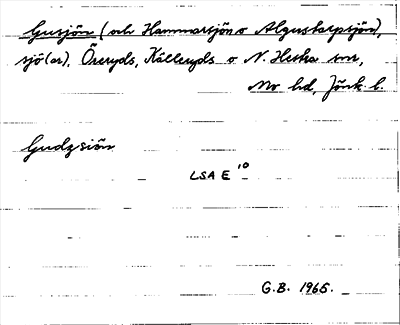 Gusjön (och Hammarsjön o Algustorpsjön),
sjö(ar), Öreryds, Källeryds o N. Hestra snr,
Mo hd, Jönk. l.
Gudzsiön
LSA E 10
G.B. 1965.